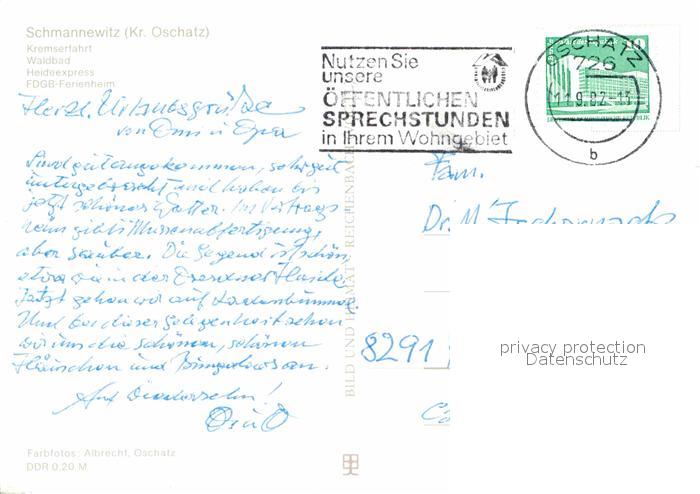 Schmannewitz (Kr. Oschatz)
Kremserfahrt
Waldbad
Heideexpress
FDGB-Ferienheim
Herzl. Urlaubsgrüße
von Omi u Opa
Sind gut angekommen, sehr gut
untergebracht und haben bis
jetzt schönes Wetter. Im Vertrags
gibts Massenabfertigung,
aber sauber. Die Gegend ist schön,
etwa wie in der Dresdner Heide.
Jetzt gehen wir auf
Und bei dieser Gelegenheit sehen
wir uns die schönen, schönen
Häuschen und Bungalows an.
Auf Wiedersehn!
O u O
Farbfotos: Albrecht, Oschatz
DDR 0,20 M
BILD UND HEIMAT REICHENBACH
Nutzen Sie
unsere
ÖFFENTLICHEN
SPRECHSTUNDEN
in Ihrem Wohngebiet
OSCHATZ
726
b
10
Fam.
Dr. M
8291
privacy protection
Datenschutz